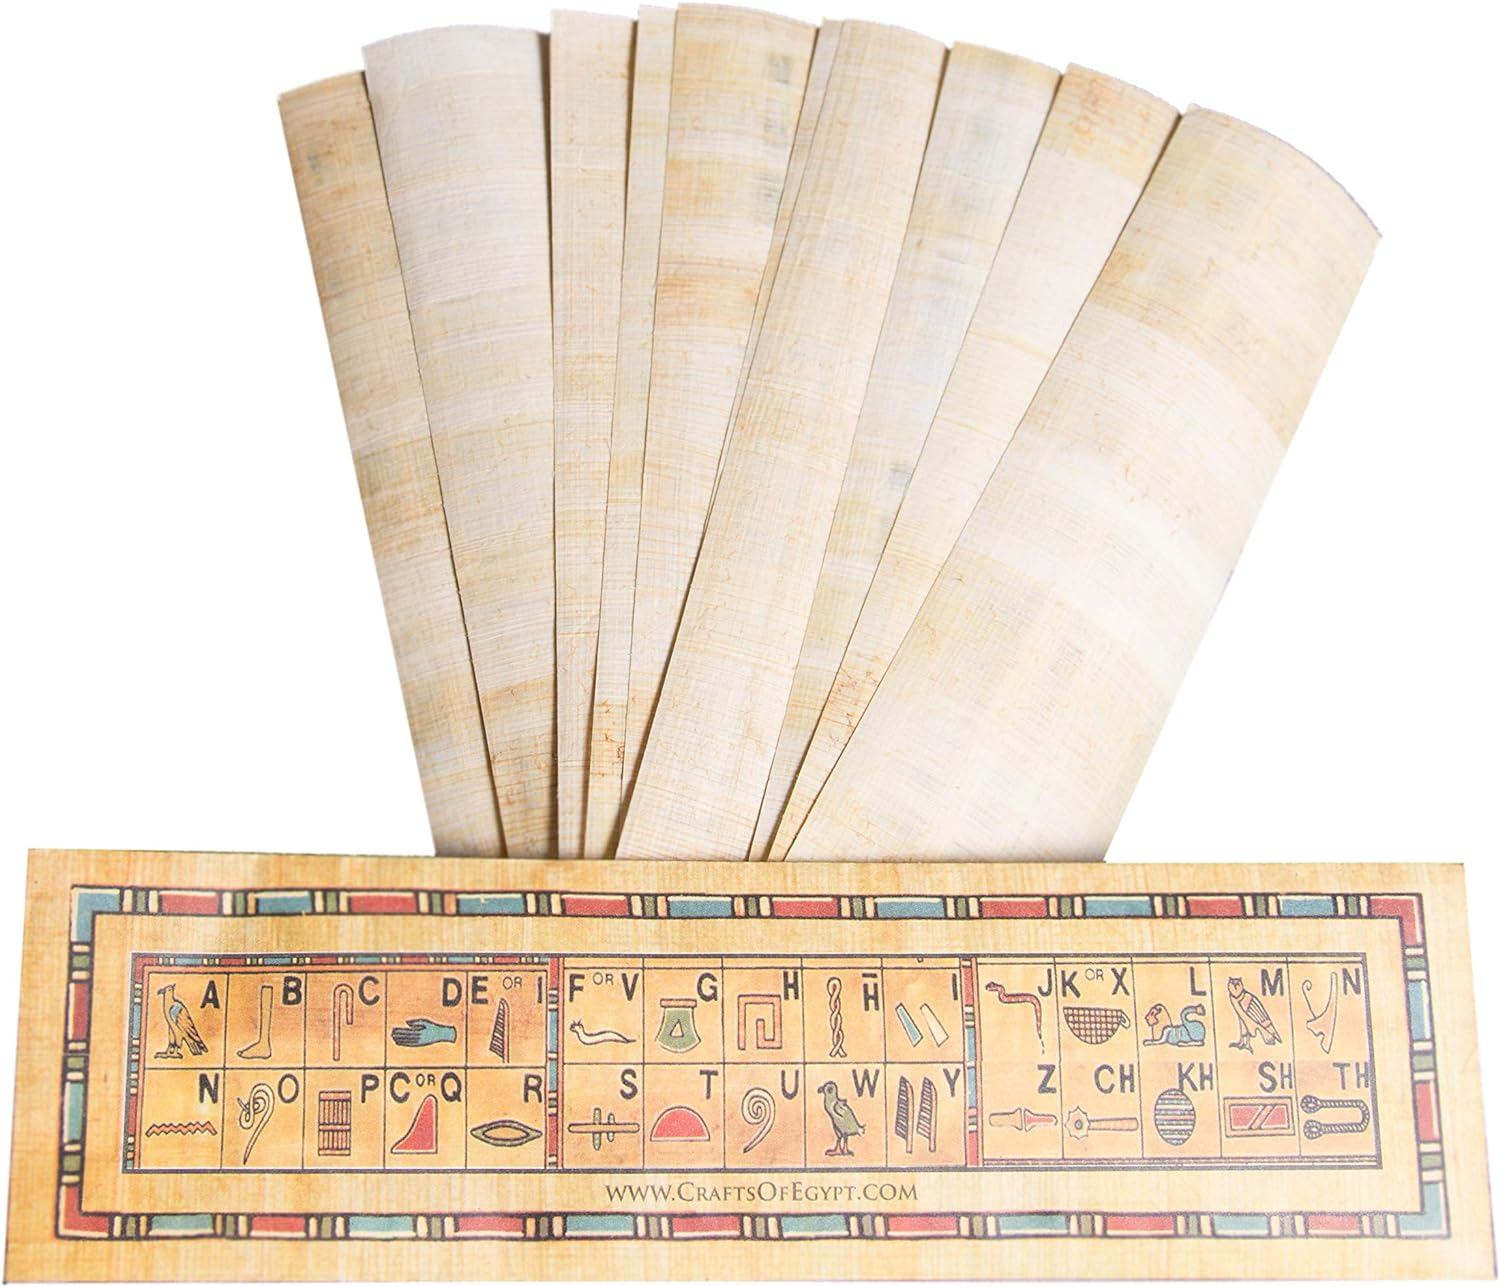 A B C D E OR I F OR V G H H̅ I J K OR X L M N
N O P C OR Q R S T U W Y Z CH KH SH TH
WWW.CRAFTSOFEGYPT.COM